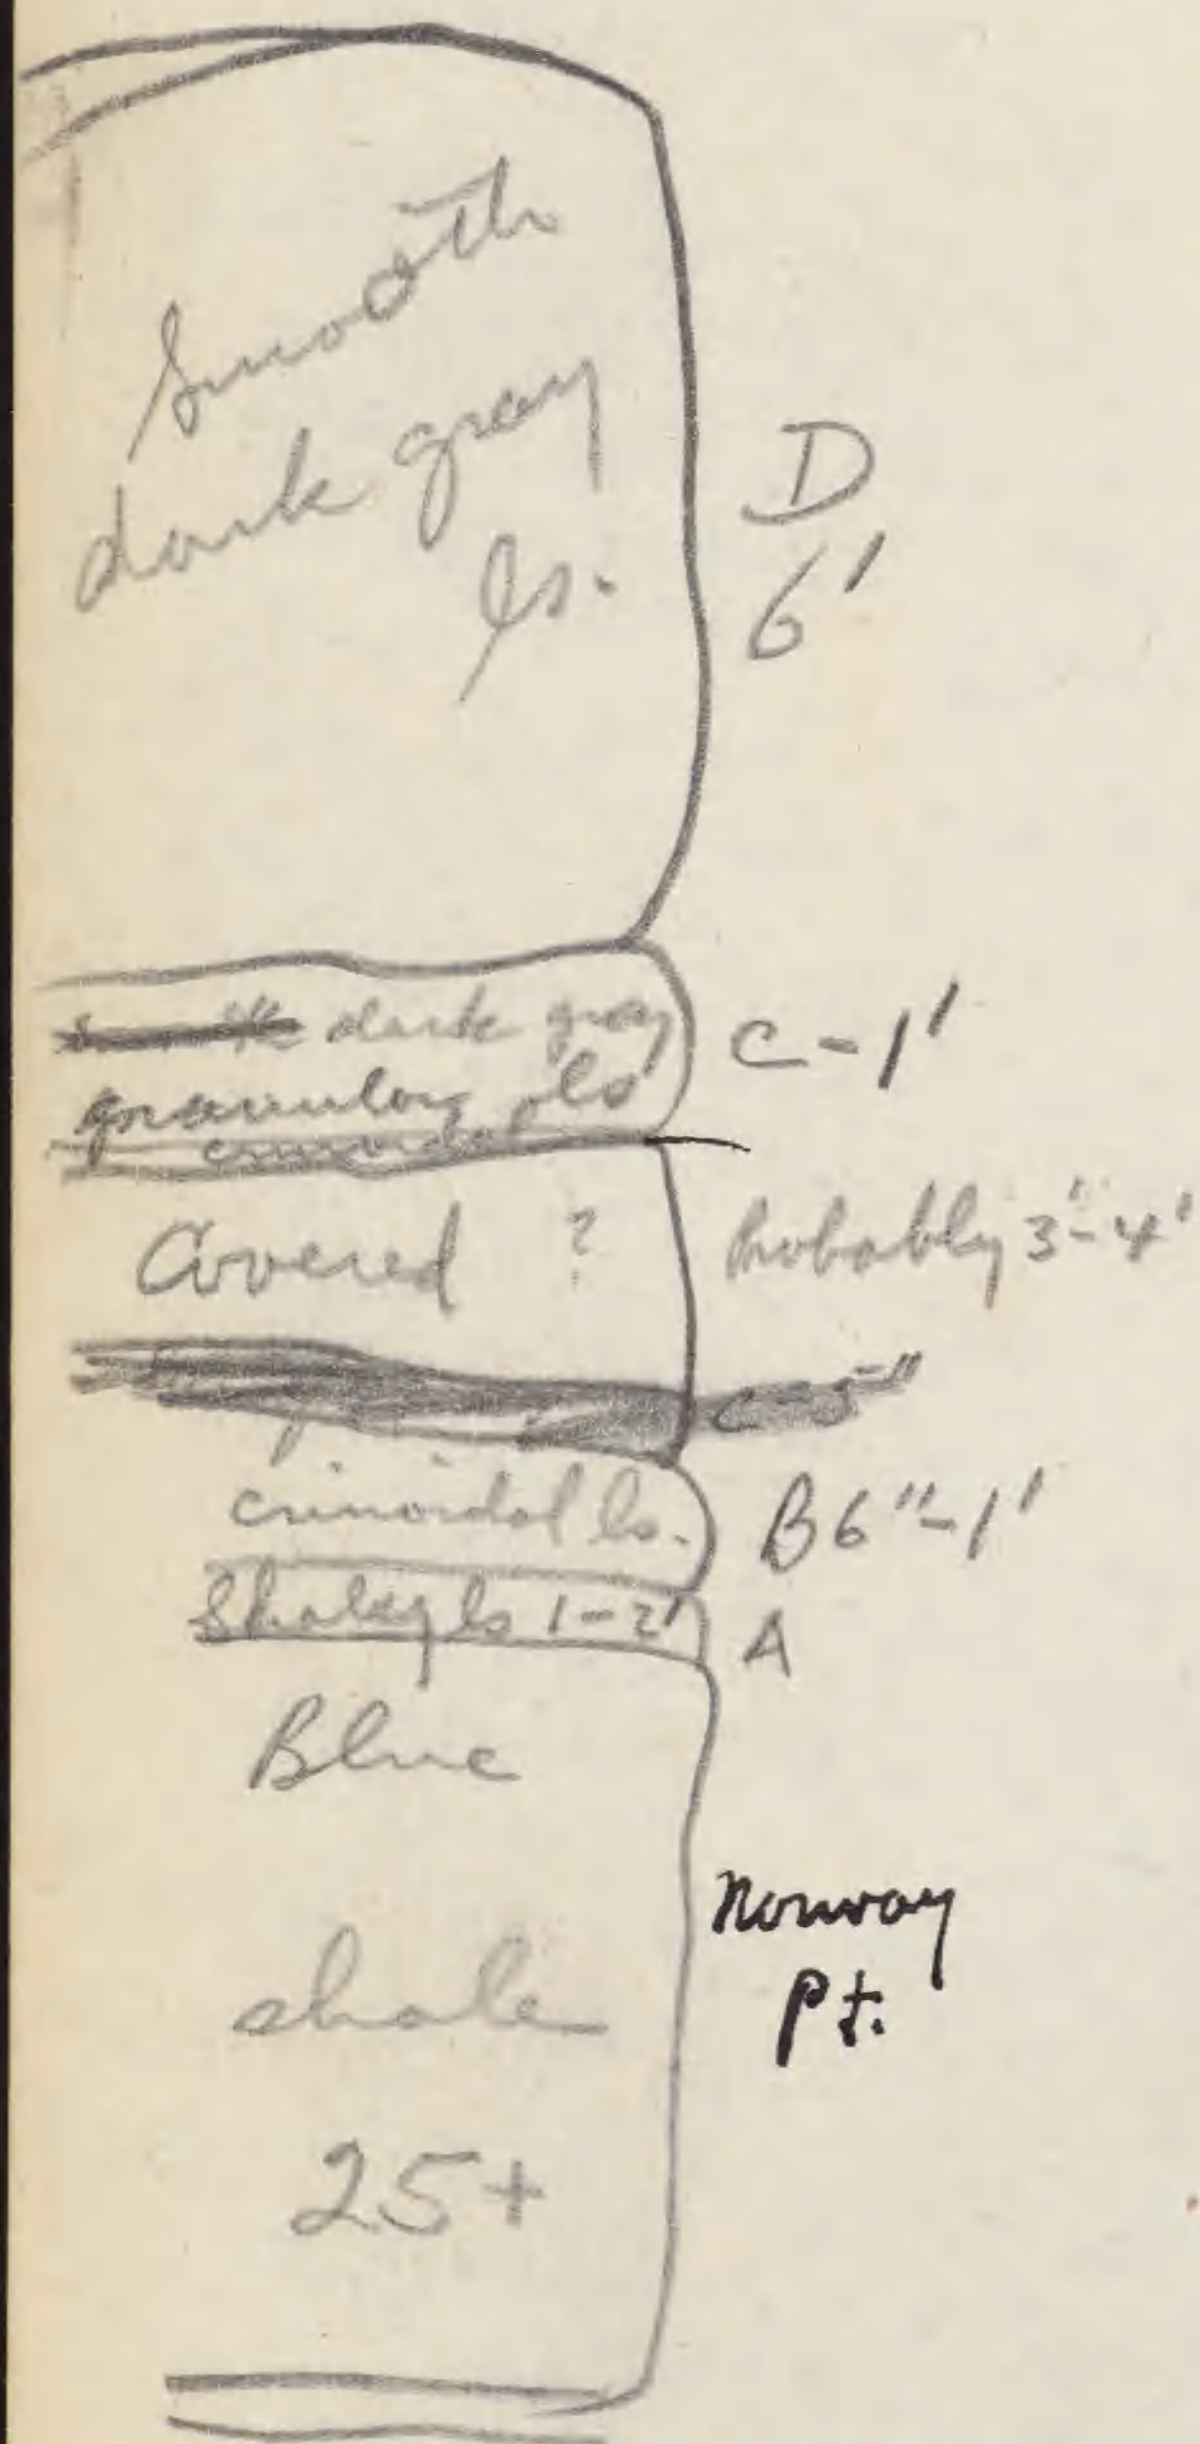 Smooth
dark gray
ls.
D
6'
smooth dark gray
granular ls
crinoidal
C - 1'
Covered ?
Probably 3'-4'
C-5"
crinoidal ls.
B 6"-1'
Shaley ls 1-2'
A
Blue
shale
25+
Norway
Pt.